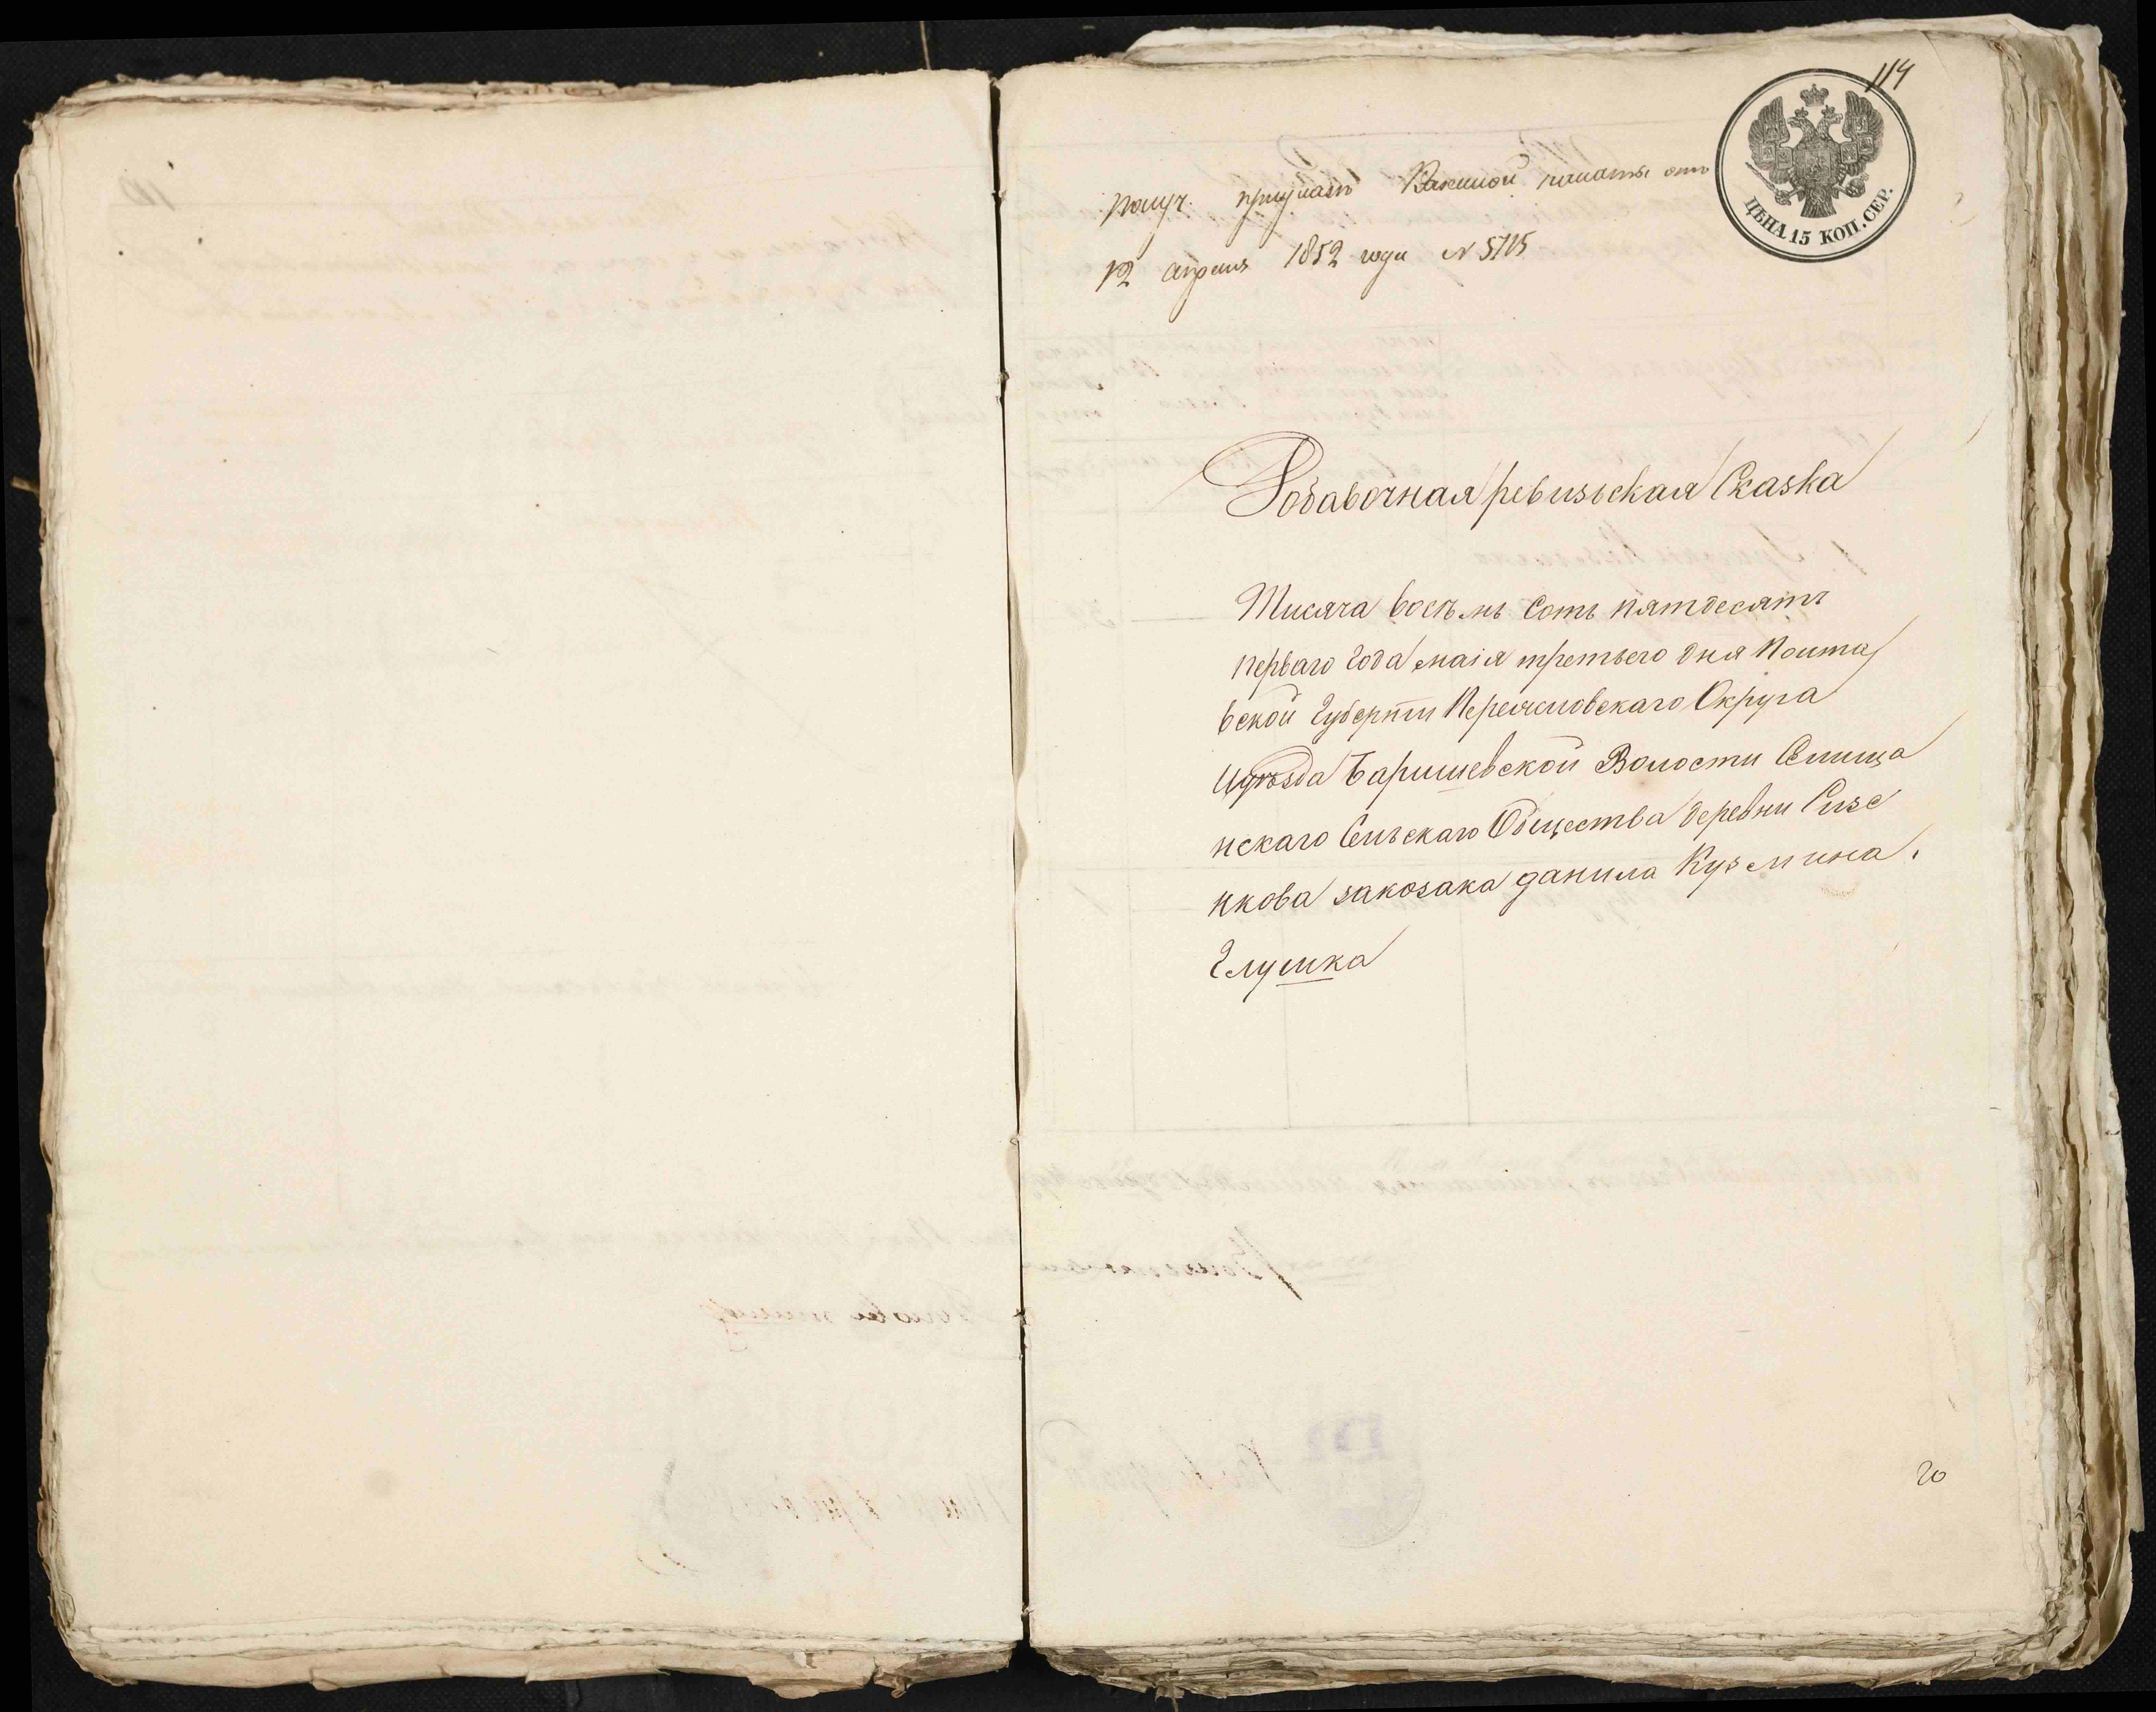 114
ЦѢНА 15 КОП. СЕР.
получ. при указѣ Казенной палаты отъ
12 апреля 1852 года N 5715
Добавочная ревизьская Сказка
Тисяча восѣмь Сотъ пятдесятъ
перваго Года маія третьего дня Полта
вской Губерніи Переясловскаго Округа
Уѣзда Баришевской Волости Селища
нскаго Сельскаго Общества деревни Сизе
нкова закозака данила Кузмина
Глушка
20